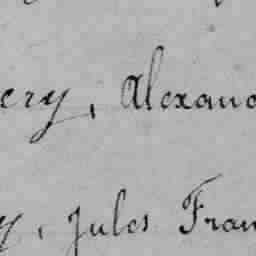 ery, Alexand
y, Jules Fran